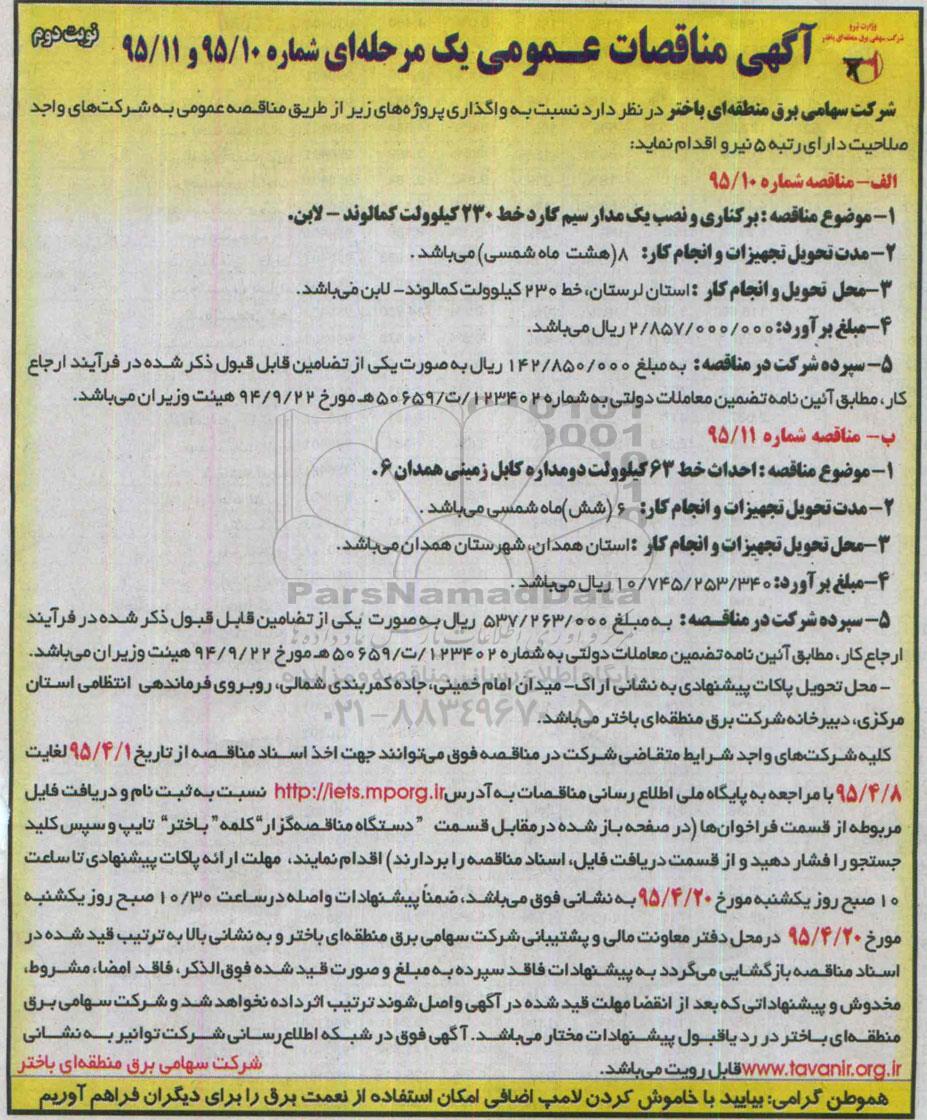 وزارت نیرو
شرکت سهامی برق منطقه‌ای باختر
نوبت دوم
آگهی مناقصات عـمومی یک مرحله‌ای شماره ۹۵/۱۰ و ۹۵/۱۱
شرکت سهامی برق منطقه‌ای باختر در نظر دارد نسبت به واگذاری پروژه‌های زیر از طریق مناقصه عمومی به شرکت‌های واجد
صلاحیت دارای رتبه ۵ نیرو اقدام نماید:
الف- مناقصه شماره ۹۵/۱۰
۱- موضوع مناقصه : برکناری و نصب یک مدار سیم گارد خط ۲۳۰ کیلوولت کمالوند - لابن.
۲- مدت تحویل تجهیزات و انجام کار: ۸ (هشت ماه شمسی) می‌باشد .
۳- محل تحویل و انجام کار : استان لرستان، خط ۲۳۰ کیلوولت کمالوند- لابن می‌باشد.
۴- مبلغ برآورد: ۲/۸۵۷/۰۰۰/۰۰۰ ریال می‌باشد.
۵- سپرده شرکت در مناقصه : به مبلغ ۱۴۲/۸۵۰/۰۰۰ ریال به صورت یکی از تضامین قابل قبول ذکر شده در فرآیند ارجاع
کار، مطابق آئین نامه تضمین معاملات دولتی به شماره ۱۲۳۴۰۲/ت/۵۰۶۵۹ هـ مورخ ۹۴/۹/۲۲ هیئت وزیران می‌باشد.
ب- مناقصه شماره ۹۵/۱۱
۱- موضوع مناقصه : احداث خط ۶۳ کیلوولت دومداره کابل زمینی همدان ۶.
۲- مدت تحویل تجهیزات و انجام کار: ۶ (شش) ماه شمسی می‌باشد .
۳- محل تحویل تجهیزات و انجام کار : استان همدان، شهرستان همدان می‌باشد.
۴- مبلغ برآورد: ۱۰/۷۴۵/۲۵۳/۳۴۰ ریال می‌باشد .
ParsNamadData
۵- سپرده شرکت در مناقـصه : به مبلغ ۵۳۷/۲۶۳/۰۰۰ ریال به صورت یکی از تضامین قابل قبول ذکر شده در فرآیند
ارجاع کار، مطابق آئین نامه تضمین معاملات دولتی به شماره ۱۲۳۴۰۲/ت/۵۰۶۵۹ هـ مورخ ۹۴/۹/۲۲ هیئت وزیران می‌باشد.
- محل تحویل پاکات پیشنهادی به نشانی اراک- میدان امام خمینی، جاده کمربندی شمالی، روبروی فرماندهی انتظامی استان
مرکزی، دبیرخانه شرکت برق منطقه‌ای باختر می‌باشد.
۰۲۱-۸۸۳۴۹۶۷۰-۵
کلیه شرکت‌های واجد شرایط متقاضی شرکت در مناقصه فوق می‌توانند جهت اخذ اسناد مناقـصه از تاریخ ۹۵/۴/۱ لغایت
۹۵/۴/۸ با مراجعه به پایگاه ملی اطلاع رسانی مناقصات به آدرس http://iets.mporg.ir نسبت به ثبت نام و دریافت فایل
مربوطه از قسمت فراخوان‌ها (در صفحه باز شده در مقابل قسمت "دستگاه مناقـصه‌گزار" کلمه" باختر" تایپ و سپس کلید
جستجو را فشار دهید و از قسمت دریافت فایل، اسناد مناقصه را بردارند) اقدام نمایند، مهلت ارائه پاکات پیشنهادی تا ساعت
۱۰ صبح روز یکشنبه مورخ ۹۵/۴/۲۰ به نشانی فوق می‌باشد، ضمناً پیشنهادات واصله در ساعت ۱۰/۳۰ صبح روز یکشنبه
مورخ ۹۵/۴/۲۰ در محل دفتر معاونت مالی و پشتیبانی شرکت سهامی برق منطقه‌ای باختر و به نشانی بالا به ترتیب قید شده در
اسناد مناقصه بازگشایی می‌گردد به پیشنهادات فاقد سپرده به مبلغ و صورت قید شده فوق‌الذکر، فاقد امضا، مشروط،
مخدوش و پیشنهاداتی که بعد از انقضا مهلت قید شده در آگهی واصل شوند ترتیب اثر داده نخواهد شد و شرکت سهامی برق
منطقه‌ای باختر در رد یا قبول پیشنهادات مختار می‌باشد. آگهی فوق در شبکه اطلاع‌رسانی شرکت توانیر به نشانی
www.tavanir.org.ir قابل رویت می‌باشد.
شرکت سهامی برق منطقه‌ای باختر
هموطن گرامی: بیایید با خاموش کردن لامپ اضافی امکان استفاده از نعمت برق را برای دیگران فراهم آوریم